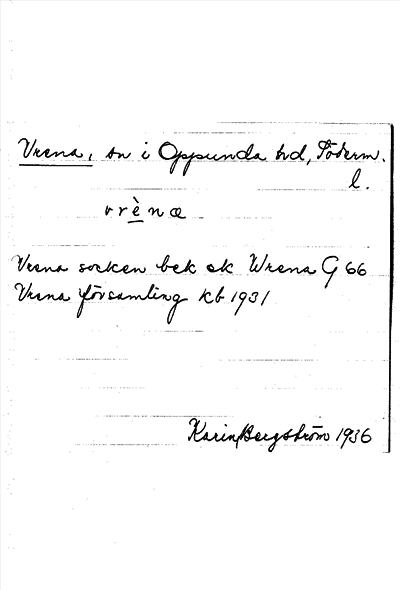 Vrena, sn i Oppunda hd, Söderm.
l.
vrènæ
Vrena socken bek ek Wrena G 66
Vrena församling kb 1931
Karin Bergström 1936